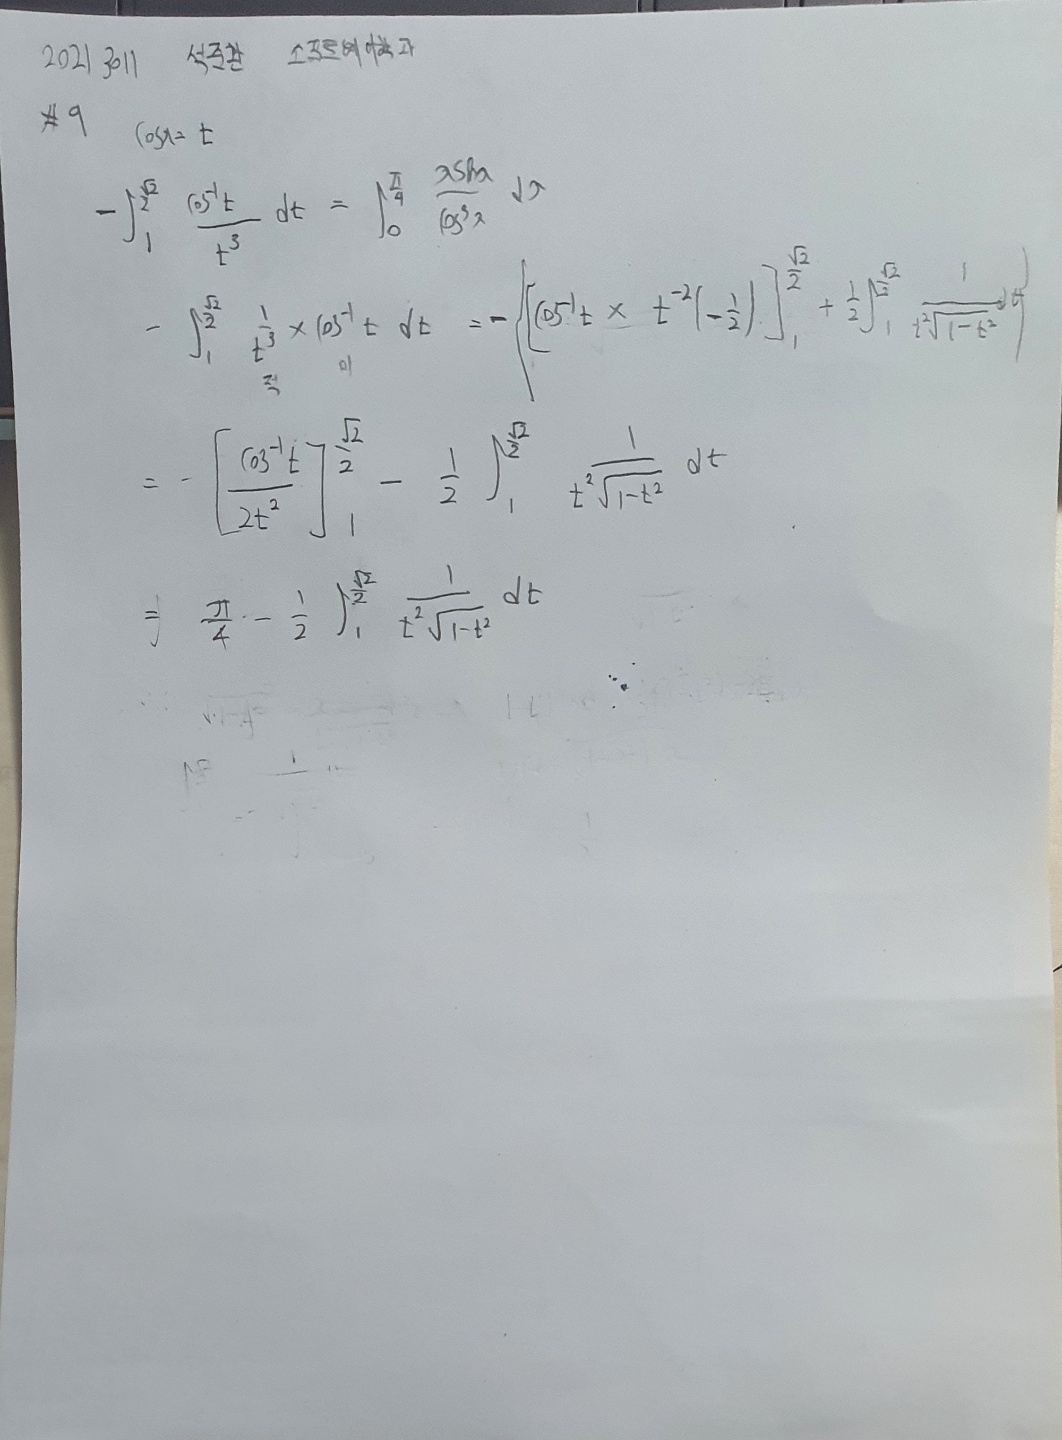 20213011 석준관 소프트웨어학과
#9 cosx = t
-∫_1^{√2/2} cos⁻¹t / t³ dt = ∫_0^{π/4} xsinx / cos³x dx
-∫_1^{√2/2} 1/t³ × cos⁻¹t dt = -{[cos⁻¹t × t⁻²(-1/2)]_1^{√2/2} + 1/2 ∫_1^{√2/2} 1 / t²√(1-t²) dt}
적 미
= -[cos⁻¹t / 2t²]_1^{√2/2} - 1/2 ∫_1^{√2/2} 1 / t²√(1-t²) dt
= π/4 - 1/2 ∫_1^{√2/2} 1 / t²√(1-t²) dt